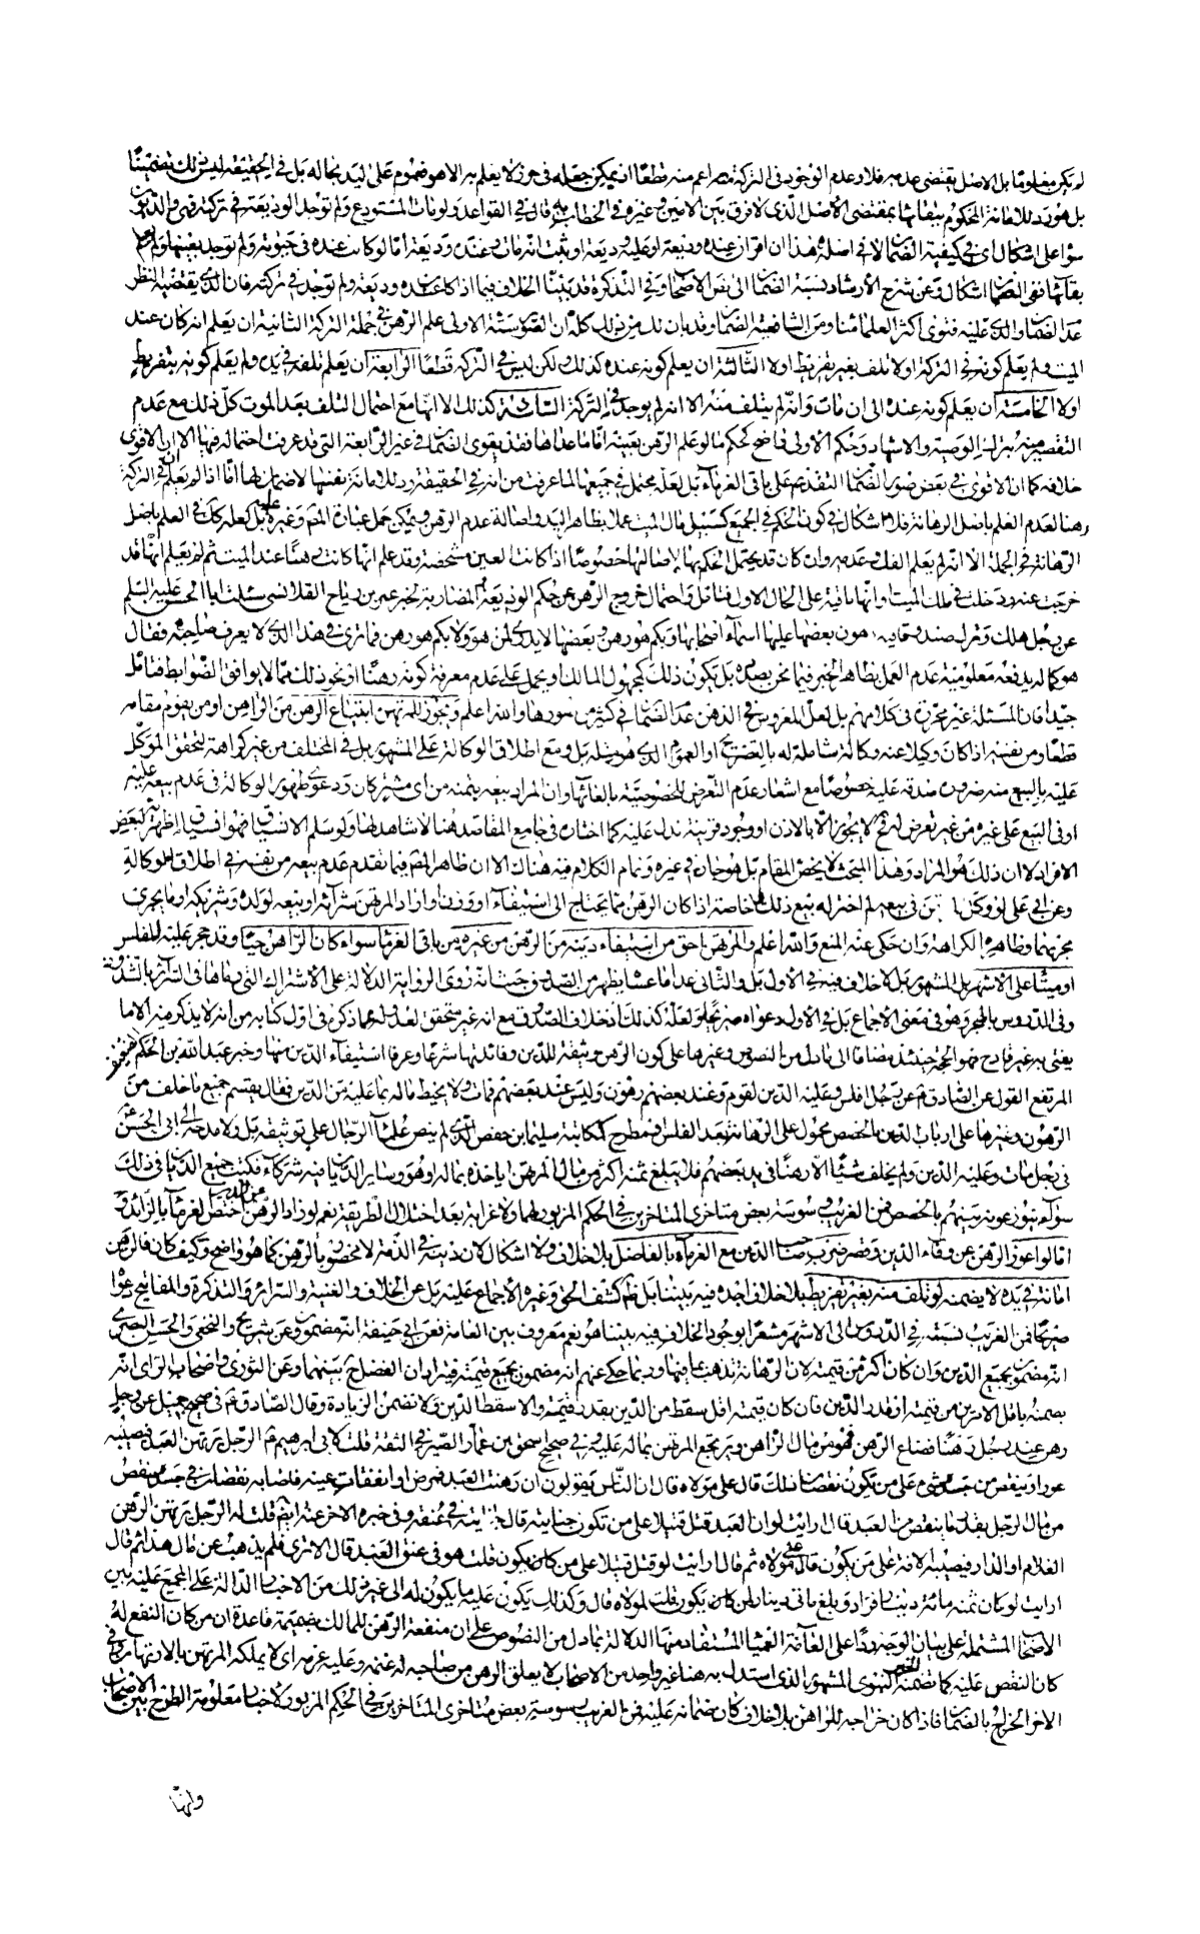 لم يكن معلوما بل الاصل يقتضى عدمه فلا وعدم الوجود فى التركة اعم منه قطعا اذ يمكن جعله فى حرز لا يعلم به الا هو فعموم على اليد بحاله بل فى الحقيقة ليس ذلك تضمينا
بل هو رد للامانة المحكوم ببقائها بمقتضى الاصل الذى لا فرق بين الامين وغيره فى الخطاب به قال فى القواعد ولو مات المستودع ولم توجد الوديعة فى تركته فهى والدين
سواء على اشكال اى فى كيفية الضمان لا فى اصله هذا ان اقر ان عنده وديعة او عليه وديعة او ثبت انه مات وعنده وديعة اما لو كانت عنده فى حيوته ولم توجد بعينها ولم يعلم
بقائها ففى الضمان اشكال وعن شرح الارشاد نسبة الضمان الى نص الاصحاب وفى التذكرة قد بينا الخلاف فيما اذا كان عنده وديعة ولم توجد فى تركته فان الذى يقتضيه النظر
عدم الضمان والذى عليه فتوى اكثر العلماء منا ومن الشافعية الضمان وقد بان لك من ذلك كله ان الصور ستة الاولى علم الرهن فى جملة التركة الثانية ان يعلم انه كان عند
الميت ولم يعلم كونه فى التركة او لا تلف بغير تفريط او لا الثالثة ان يعلم كونه عنده كذلك ولكن ليس فى التركة قطعا الرابعة ان يعلم تلفه فى يده ولم يعلم كونه بتفريط
او لا الخامسة ان يعلم كونه عنده الى ان مات وانه لم يتلف منه الا انه لم يوجد فى التركة السادسة كذلك الا انها مع احتمال التلف بعد الموت كل ذلك مع عدم
التقصير منه بترك الوصية والاشهاد وحكم الاولى واضح كحكم ما لو علم الرهن بعينه اما ما عداها فقد يقوى الضمان فى غير الرابعة التى قد عرفت احتماله فيها الا ان الاقوى
خلافه كما ان الاقوى فى بعض صور الضمان التقديم على باقى الغرماء بل لعله محتمل فى جميعها لما عرفت من انه فى الحقيقة رد للامانة نفسها لا ضمان لها اما اذا لم يعلم فى التركة
رهنا لعدم العلم باصل الرهانة فلا اشكال فى كون الحكم فى الجميع كسبيل مال الميت عملا بظاهر اليد واصالة عدم الرهن ويمكن حمل عبارة المص وغيره عليه بل لعله كك فى العلم باصل
الرهانة فى الجملة الا انه لم يعلم الفك وعدمه وان كان قد يحتمل الحكم بها لاصالتها خصوصا اذا كانت العين مشخصة وقد علم انها كانت رهنا عند الميت ثم لم يعلم انها قد
خرجت عنه ودخلت فى ملك الميت او انها باقية على الحال الاول فتامل واحتمال خروج الرهن عن حكم الوديعة او المضاربة لخبر عمر بن رياح القلا سئلت ابا الحسن عليه السلم
عن رجل هلك وترك صندوقا فيه رهون بعضها عليها اسماء اصحابها وبكم هو رهن وبعضها لا يدرى لمن هو ولا بكم هو رهن فما ترى فى هذا الذى لا يعرف صاحبه فقال
هو كماله يدفعه معلومية عدم العمل بظاهر الخبر فيما نحن بصدده بل يكون ذلك كمجهول المالك او يحمل على عدم معرفة كونه رهنا او نحو ذلك مما لا يوافق الضوابط فتامل
جيدا فان المسئلة غير محررة فى كلامهم بل لعل المغروس فى الذهن عدم الضمان فى كثير من صورها والله اعلم ويجوز للمرتهن ابتياع الرهن من الراهن او من يقوم مقامه
قطعا ومن نفسه اذا كان وكيلا عنه وكالة شاملة له بالتصريح او العموم الذى هو مثله بل ومع اطلاق الوكالة على المشهور بل فى المختلف من غير كراهة لتحقق الموكل
عليه بالبيع منه ضرورة صدقه عليه خصوصا مع اشعار عدم التعرض للخصوصية بالغائها وان المراد بيعه بثمنه من اى مشتر كان ودعوى ظهور الوكالة فى عدم بيعه عليه
او فى البيع على غيره من غير تعرض له فح لا يجوز الا بالاذن او وجود قرينة تدل عليه كما اختاره فى جامع المقاصد هنا لا شاهد لها ولو سلم الانسياق فهو انسياق اظهر لبعض
الافراد لا ان ذلك هو المراد وهذا المبحث لا يخص المقام بل هو جار فيه وغيره وتمام الكلام فيه هناك الا ان ظاهر المص فيما تقدم عدم بيعه من نفسه فى اطلاق الوكالة
وعن ابى على لو وكل المرتهن فى بيعه لم اختر له بيع ذلك خاصة اذا كان الرهن مما يحتاج الى استيفاء او وزن او اراد المرتهن شرائه او بيعه لولده وشريكه او ما يجرى
مجريهما وظاهره الكراهة وان حكى عنه المنع والله اعلم والمرتهن احق من استيفاء دينه من الرهن من غيره من باقى الغرماء سواء كان الراهن حيا وقد حجر عليه للفلس
او ميتا على الاشهر بل المشهور بل لا خلاف فيه فى الاول بل والثانى عدا ما عساه يظهر من الصدوق حيث انه روى الرواية الدالة على الاشتراك التى رماها فى السرائر بالشذوذ
وفى الدروس بالهجر وهو فى معنى الاجماع بل فى الاول دعواه صريحا ولعله كذلك اذ خلاف الصدوق مع انه غير متحقق لعدوله عما ذكره فى اول كتابه من انه لا يذكر فيه الا ما
يفتى به غير قادح فهو الحجة حينئذ مضافا الى ما دل من النصوص وغيرها على كون الرهن وثيقة للدين وفائدتها شرعا وعرفا استيفاء الدين منها وخبر عبد الله بن الحكم الضعيف
المرتفع القول عن الصادق عن رجل افلس وعليه الدين لقوم وعند بعضهم رهون وليس عند بعضهم فمات ولا يحيط ماله بما عليه من الدين فقال يقسم جميع ما خلف من
الرهون وغيرها على ارباب الدين بالحصص محمول على الرهانة بعد الفلس او مطرح كمكاتبة سليمان بن حفص الذى لم ينص علماء الرجال على توثيقه بل ولا مدحه الى ابى الحسن
فى رجل مات وعليه الدين ولم يخلف شيئا الا رهنا فى يد بعضهم فلا يبلغ ثمنه اكثر من مال المرتهن اياخذه بماله او هو وساير الديان فيه شركاء فكتب جميع الديان فى ذلك
سواء يتوزعونه بينهم بالحصص فمن الغريب وسوسة بعض متاخرى المتاخرين فى الحكم المزبور لهما ولا غرابة بعد اختلال الطريقة نعم لو زاد الرهن عن الدين اختص الغرماء بالزائد
اما لو اعوز الرهن عن وفاء الدين وقصر ضرب صاحب الدين مع الغرماء بالفاضل بلا خلاف ولا اشكال لان دينه فى الذمة لا مخصوص بالرهن كما هو واضح وكيف كان فالرهن
امانة فى يده لا يضمنه لو تلف منه بغير تفريط بلا خلاف اجده فيه بيننا بل فى كشف الحق وغيره الاجماع عليه بل عن الخلاف والغنية والسرائر والتذكرة والمفاتيح دعواه
صريحا فمن الغريب نسبته فى الدروس الى الاشهر مشعرا بوجود الخلاف فيه بيننا هو نعم معروف بين العامة فعن ابى حنيفة انه مضمون وعن شريح والنخعى والحسن البصرى
انه مضمون بجميع الدين وان كان اكثر من قيمته لان الرهانة تذهب بما فيها وربما حكى عنهم انه مضمون بجميع قيمته فيترادان الفضل بينهما وعن الثورى واصحاب الراى انه
يضمنه باقل الامرين من قيمته او قدر الدين فان كان قيمته اقل سقط من الدين بقدر قيمته والا سقط الدين ولا تضمن الزيادة وقال الصادق فى صحيح جميل عن رجل
رهن عند رجل رهنا فضاع الرهن فهو من مال الراهن ويرجع المرتهن بماله عليه وفى صحيح اسحق بن عمار الصيرفى الثقة قلت لابى ابراهيم الرجل يرتهن العبد فيصيبه
عور او ينقص من جسده شىء على من يكون نقصان ذلك قال على مولاه قال ان الناس يقولون ان رهنت العبد فمرض او انفقأت عينه فاصابه نقصان فى جسده ينقص
من مال الرجل بقدر ما ينقص من العبد قال ارايت لو ان العبد قتل قتيلا على من تكون جنايته قال جنايته فى عنقه وفى خبره الاخر عنه ايضا قلت له الرجل يرتهن الرهن
الغلام او الدار فيصيبه الافة على من يكون قال على مولاه ثم قال ارايت لو قتل قتيلا على من كان يكون قلت هو فى عنق العبد قال الا ترى فلم يذهب عن مال هذا ثم قال
ارايت لو كان ثمنه مائة دينار فزاد وبلغ مائتى دينار لمن كان يكون قلت لمولاه قال وكذلك يكون عليه ما يكون له الى غير ذلك من الاخبار الدالة على المجمع عليه بين
الاصحاب المشتملة على بيان الوجه ردا على العامة العمياء المستفاد منها الدلالة بما دل من النصوص على ان منفعة الرهن للمالك بضميمة قاعدة ان من كان النفع له
كان النقص عليه كما تضمنه الخبر النبوى المشهور الذى استدل به هنا غير واحد من الاصحاب لا يغلق الرهن من صاحبه له غنمه وعليه غرمه اى لا يملكه المرتهن بالارتهان وفى
الاخر الخراج بالضمان فاذا كان خراجه للراهن بلا خلاف كان ضمانه عليه فمن الغريب وسوسة بعض متاخرى المتاخرين فى الحكم المزبور لاخبار معلومة الطرح بين الاصحاب
ولهذا